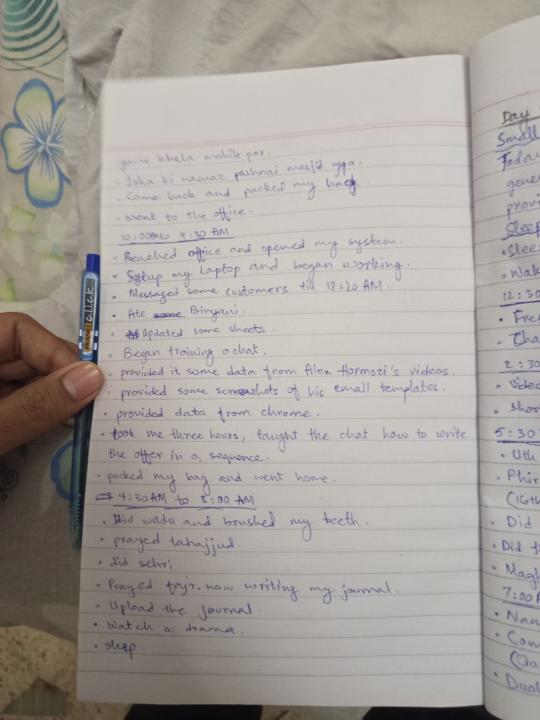 game khela mobile par.
• Isha ki namaz parhnai masjid gya.
• Came back and packed my bag
• Went to the office.
10:00PM to 4:30 AM
• Reached office and opened my system.
• Setup my laptop and began working.
• Messaged some customers till 12:20 AM.
• Ate Biryani.
• Updated some sheets.
• Began training a chat.
• provided it some data from Alex Hormozi's videos.
• provided some screenshots of his email templates.
• provided data from chrome.
• took me three hours, taught the chat how to write
the offer in a sequence.
• packed my bag and went home.
→ 4:30 AM to 8:00 AM
• Did wudu and brushed my teeth.
• prayed tahajjud
• did sehri.
• Prayed fajr. now writing my journal.
• Upload the journal.
• Watch a drama.
• sleep.
click
Day
Small
Today
gene
provi
Sleep
• Slee
• Wak
12:30
• Fre
• Cha
2:30
• Video
• Shor
5:30
• Uth
• Phir
(16th
• Did
• Did
• Magh
7:00
• Nam
• Com